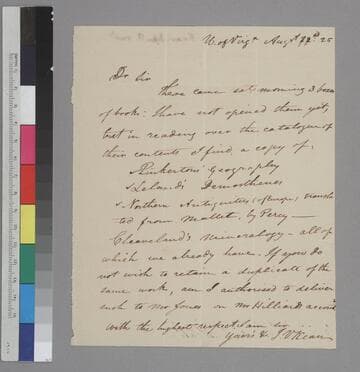 U. of Virg.a Aug.t 22d 25
Dr Sir
There came satymorning 3 boxes
of books: I have not opened them yet,
but in reading over the catalogue of
their contents I find a copy of,
Pinkerton's Geography
Leland's Demosthenes
Northern Antiquities transla
ted from Mallet, by Percy —
Cleaveland's Mineralogy — all of
which we already have. If you do
not wish to retain a duplicate of the
same work, am I authorised to deliver
such to Mr Jones on Mr Hilliard's acount
with the highest respect I am sir
yours &